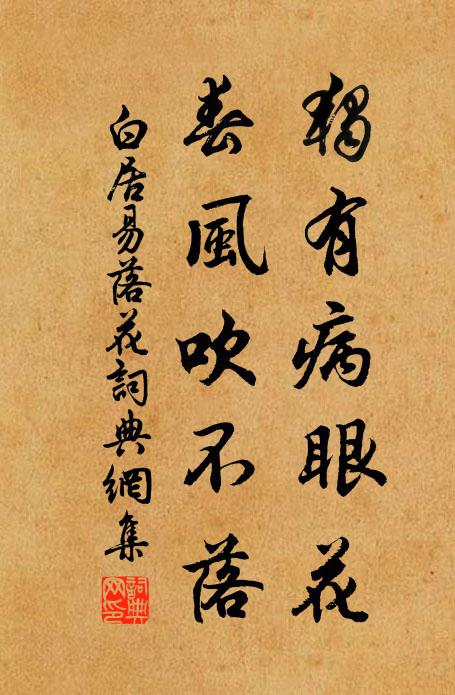 獨有病眼花
春風吹不落
白居易落花詞典網集
詞典网印